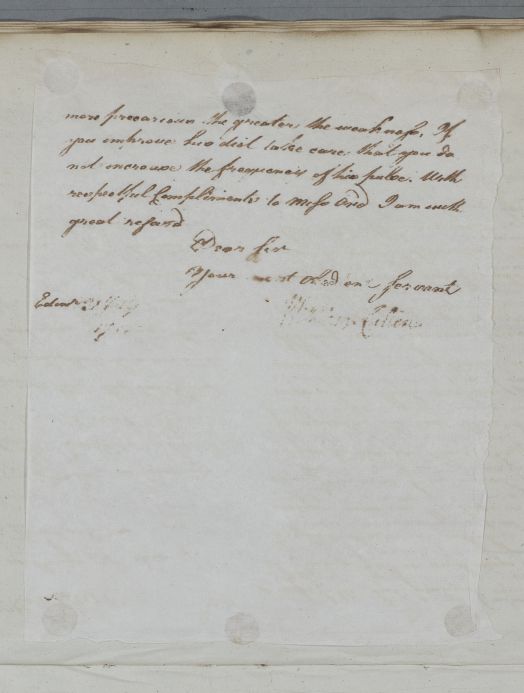 more precarious the greater the weakness. If
you improve his diet take care that you do
not increase the frequency of his pulse. With
respectful Compliments to I am with
great regard
Dear Sir
Your most obedient servant
Edinr
William Cullen